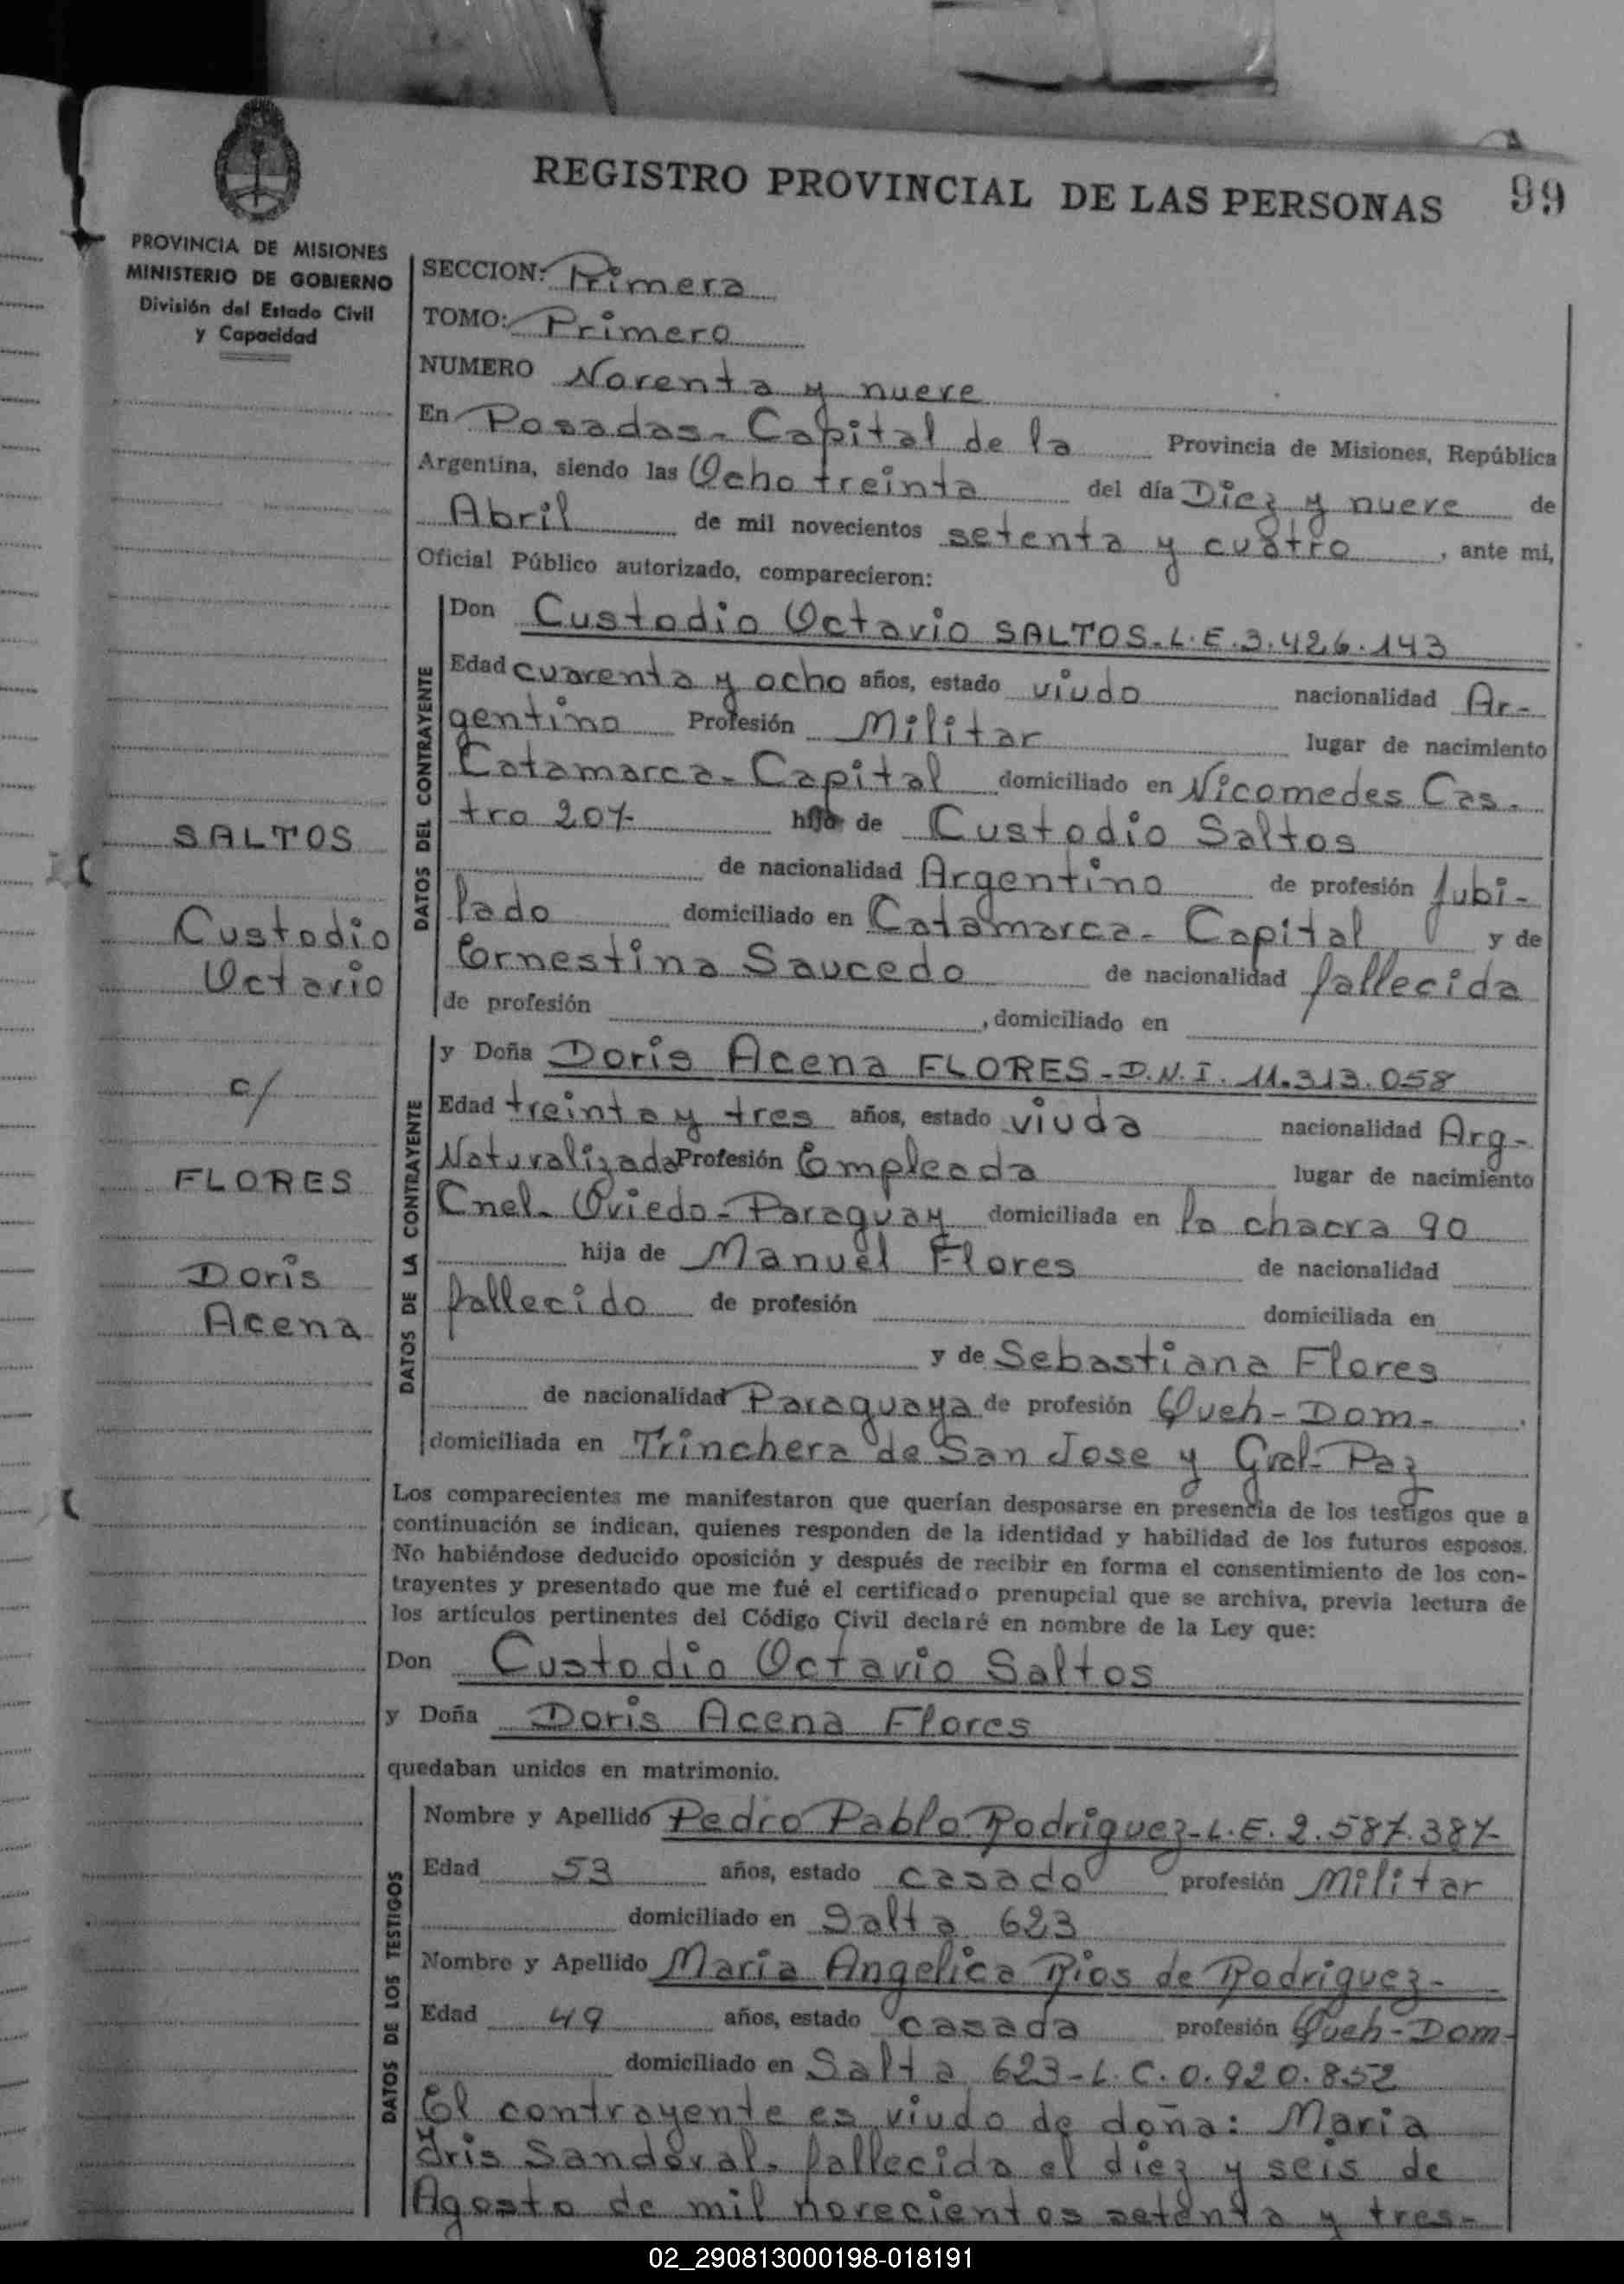 REGISTRO PROVINCIAL DE LAS PERSONAS 99
PROVINCIA DE MISIONES
MINISTERIO DE GOBIERNO
División del Estado Civil
y Capacidad
SALTOS
Custodio
Octavio
c/
FLORES
Doris
Acena
SECCION: Primera
TOMO: Primero
NUMERO Noventa y nueve
En Posadas - Capital de la Provincia de Misiones, República
Argentina, siendo las Ocho treinta del día Diez y nueve de
Abril de mil novecientos setenta y cuatro, ante mi,
Oficial Público autorizado, comparecieron:
DATOS DEL CONTRAYENTE
Don Custodio Octavio SALTOS - L.E. 3.426.143
Edad cuarenta y ocho años, estado viudo nacionalidad Ar-
gentino Profesión Militar lugar de nacimiento
Catamarca - Capital domiciliado en Nicomedes Cas-
tro 207- hijo de Custodio Saltos
de nacionalidad Argentino de profesión Jubi-
lado domiciliado en Catamarca - Capital y de
Ernestina Saucedo de nacionalidad fallecida
de profesión , domiciliado en
DATOS DE LA CONTRAYENTE
y Doña Doris Acena FLORES - D.N.I. 11.313.058
Edad treinta y tres años, estado viuda nacionalidad Arg-
Naturalizada Profesión Empleada lugar de nacimiento
Cnel. Oviedo - Paraguay domiciliada en la chacra 90
hija de Manuel Flores de nacionalidad
fallecido de profesión domiciliada en
y de Sebastiana Flores
de nacionalidad Paraguaya de profesión Queh-Dom-
domiciliada en Trinchera de San Jose y Gral. Paz
Los comparecientes me manifestaron que querían desposarse en presencia de los testigos que a
continuación se indican, quienes responden de la identidad y habilidad de los futuros esposos.
No habiéndose deducido oposición y después de recibir en forma el consentimiento de los con-
trayentes y presentado que me fué el certificado prenupcial que se archiva, previa lectura de
los artículos pertinentes del Código Civil declaré en nombre de la Ley que:
Don Custodio Octavio Saltos
y Doña Doris Acena Flores
quedaban unidos en matrimonio.
DATOS DE LOS TESTIGOS
Nombre y Apellido Pedro Pablo Rodriguez - L.E. 2.587.387-
Edad 53 años, estado casado profesión Militar
domiciliado en Salta 623
Nombre y Apellido Maria Angelica Rios de Rodriguez-
Edad 49 años, estado casada profesión Queh-Dom-
domiciliado en Salta 623 - L.C. 0.920.852
El contrayente es viudo de doña: Maria
Iris Sandoval, fallecida el diez y seis de
Agosto de mil novecientos setenta y tres-
02_290813000198-018191